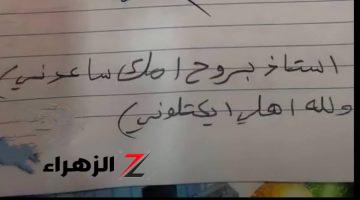 استاذ بروح امك ساعدوني)
ولله اهلي ايكتلوني)
الزهراء